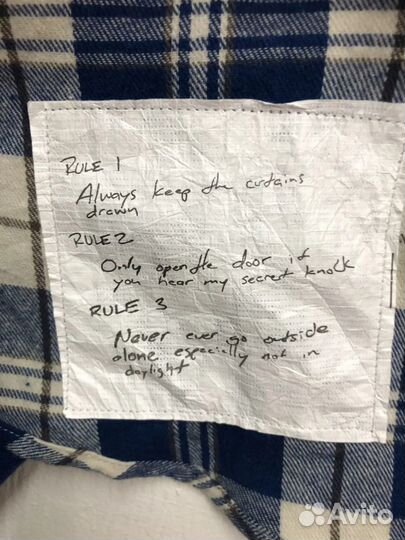 RULE 1
Always keep the curtains
drawn
RULE 2
Only open the door if
you hear my secret knock
RULE 3
Never ever go outside
alone especially not in
daylight
Avito